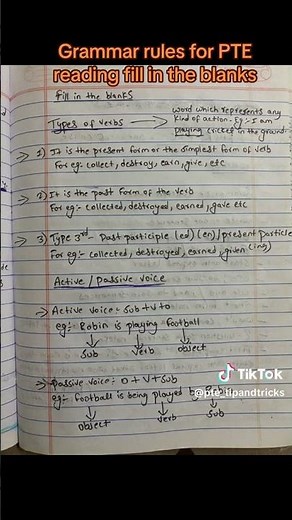 Grammar rules for PTE
reading fill in the blanks
Fill in the blanks
Types of verbs → word which represents any
kind of action. Eg:- I am
playing cricket in the ground.
→ 1) It is the present form or the simplest form of verb
For eg:- collect, destroy, earn, give, etc
→ 2) It is the past form of the verb
For eg:- collected, destroyed, earned, gave etc
→ 3) Type 3rd - Past participle (ed) (en)/present Particle
(ing)
For eg:- collected, destroyed, earned, given
Active / Passive voice
→ Active voice:- Sub + V + O
eg:- Robin is playing football
Sub Verb object
→ Passive voice:- O + V + Sub
eg:- football is being played by
object verb Sub
TikTok
@pte_tipandtricks